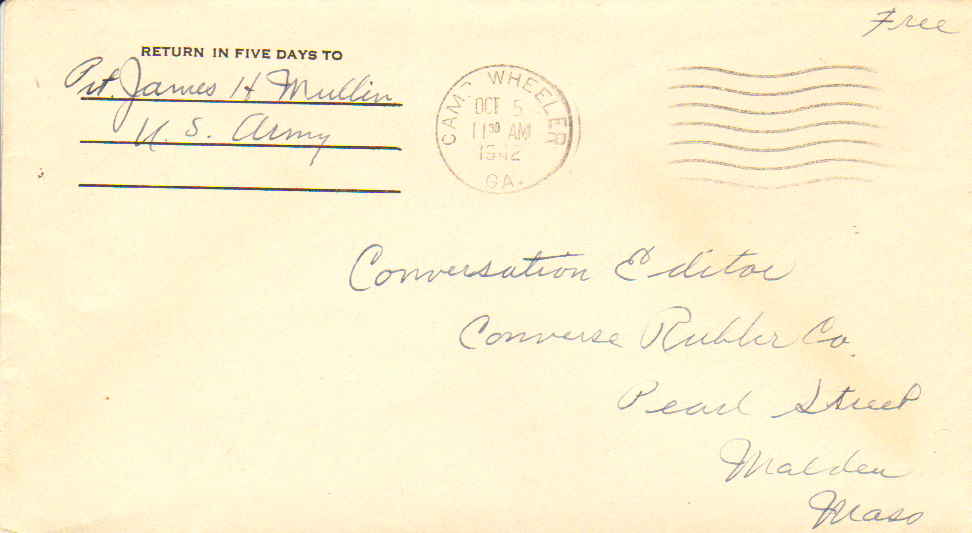 Free
RETURN IN FIVE DAYS TO
Pvt. James H Mullin
U. S. Army
CAMP WHEELER
OCT 5
11 30 AM
1942
GA.
Conversation Editor
Converse Rubber Co.
Pearl Street
Malden
Mass